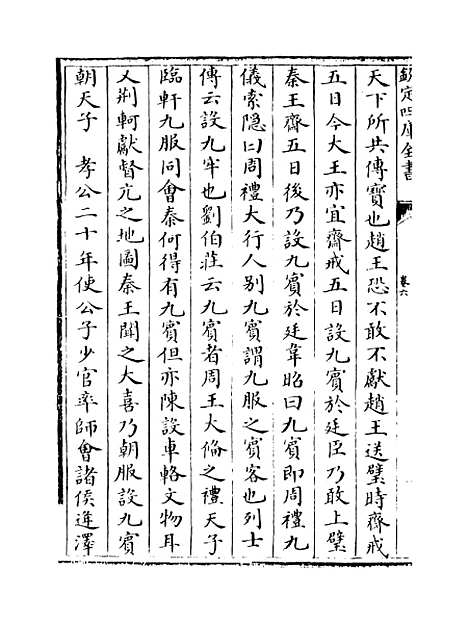 欽定四庫全書
卷六
天下所共傳寳也趙王恐不敢不獻趙王送璧時齋戒
五日今大王亦宜齋戒五日設九賓於廷臣乃敢上璧
秦王齋五日後乃設九賓於廷韋昭曰九賓即周禮九
儀索隐曰周禮大行人别九賓謂九服之賓客也列士
傳云設九牢也劉伯莊云九賓者周王大備之禮天子
臨軒九服同會秦何得有九賓但亦陳設車輅文物耳
又荆軻獻督亢之地圖秦王聞之大喜乃朝服設九賓
朝天子 孝公二十年使公子少官率師會諸侯逢澤